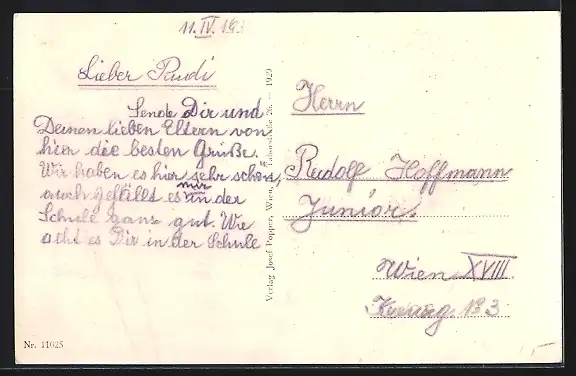 11.IV.193
Lieber Rudi
Sende Dir und
Deinen lieben Eltern von
hier die besten Grüße.
Wir haben es hier sehr schön,
auch gefällt es mir in der
Schule ganz gut. Wie
geht es Dir in der Schule
Nr. 11025
Verlag Josef Popper, Wien, Taborstraße 26 — 1929
Herrn
Rudolf Hoffmann
Junior.
Wien XVIII
183